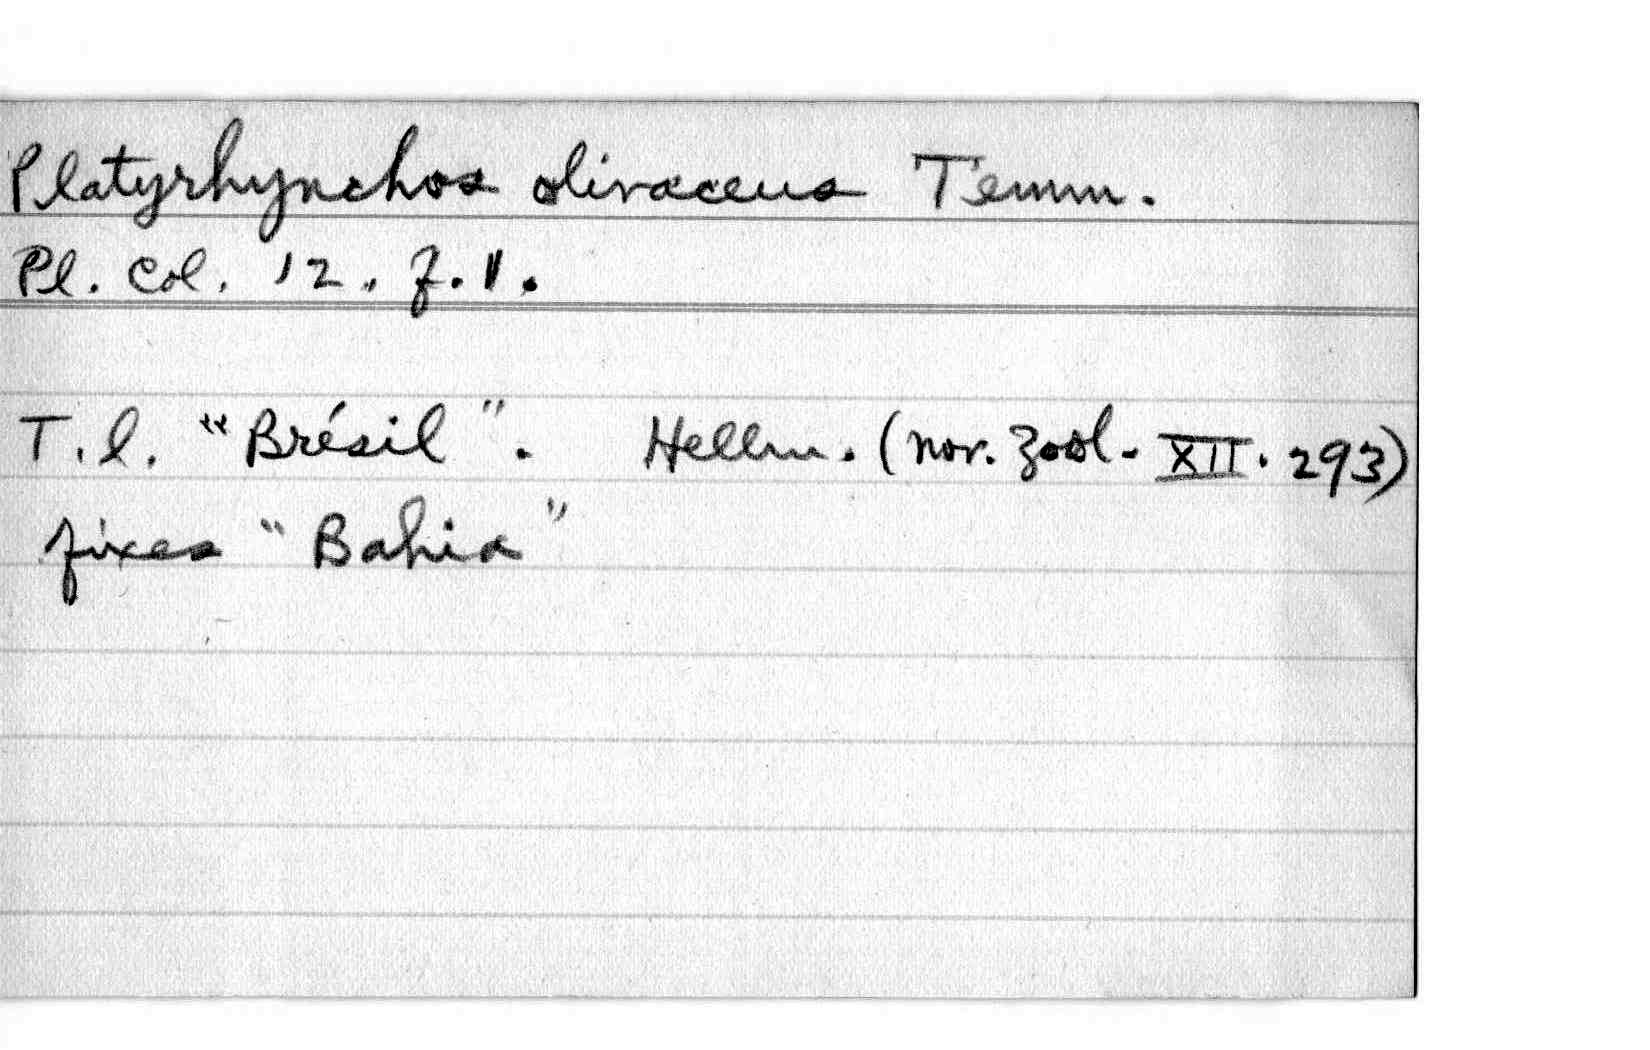 Platyrhynchos olivaceus Temm.
Pl. Col. 12. f. 1.
T. l. "Brésil". Hellm. (Nov. Zool. XII. 293)
fixes "Bahia"